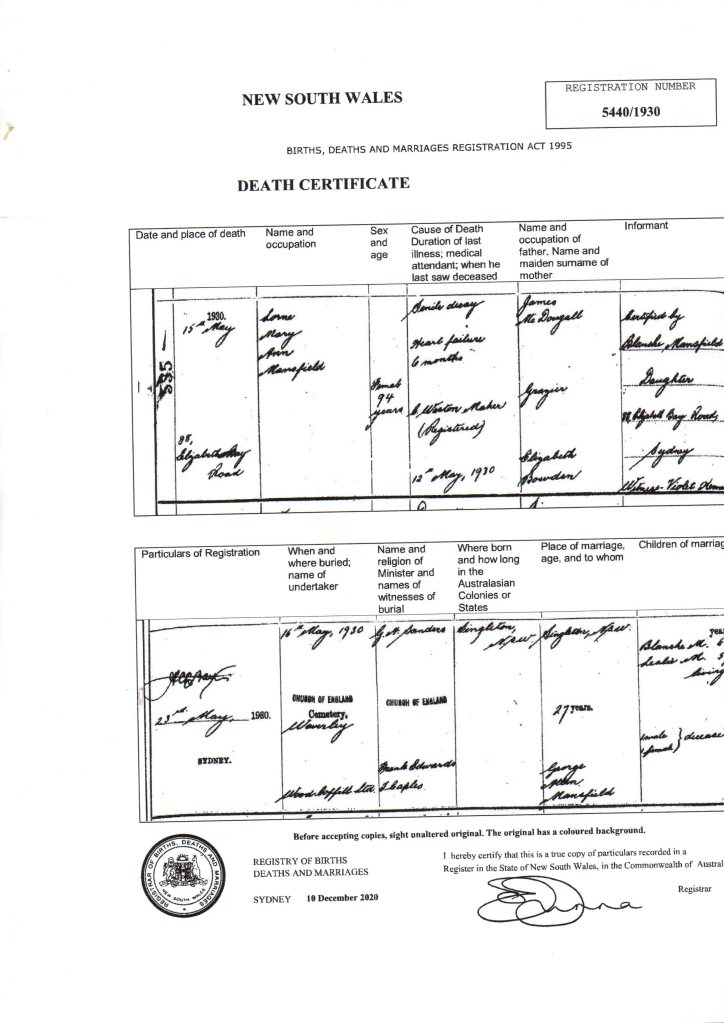 NEW SOUTH WALES
REGISTRATION NUMBER
5440/1930
BIRTHS, DEATHS AND MARRIAGES REGISTRATION ACT 1995
DEATH CERTIFICATE
Date and place of death
Name and
occupation
Sex
and
age
Cause of Death
Duration of last
illness; medical
attendant; when he
last saw deceased
Name and
occupation of
father. Name and
maiden surname of
mother
Informant
535
1930.
15th May
88,
Elizabeth Bay
Road
Lorne
Mary
Ann
Mansfield
Female
94
years
Senile decay
Heart failure
6 months
C. Weston Maher
(Registered)
12th May, 1930
James
McDougall
Grazier
Elizabeth
Bowden
Certified by
Blanche Mansfield
Daughter
88, Elizabeth Bay Road,
Sydney
Witness - Violet
Particulars of Registration
When and
where buried;
name of
undertaker
Name and
religion of
Minister and
names of
witnesses of
burial
Where born
and how long
in the
Australasian
Colonies or
States
Place of marriage,
age, and to whom
Children of marriag
23rd May, 1930.
SYDNEY.
16th May, 1930
CHURCH OF ENGLAND
Cemetery,
Waverley
Wood Coffill Ltd.
G. N. Sanders
CHURCH OF ENGLAND
Frank Edwards
T. Caples
Singleton,
N.S.W.
Singleton, N.S.W.
27 years.
George
Allen
Mansfield
yea
Blanche M. 6
Leslie M. 5
living
male
female } decease
Before accepting copies, sight unaltered original. The original has a coloured background.
REGISTRAR OF BIRTHS, DEATHS AND MARRIAGES
NEW SOUTH WALES
REGISTRY OF BIRTHS
DEATHS AND MARRIAGES
SYDNEY 10 December 2020
I hereby certify that this is a true copy of particulars recorded in a
Register in the State of New South Wales, in the Commonwealth of Austral
Registrar